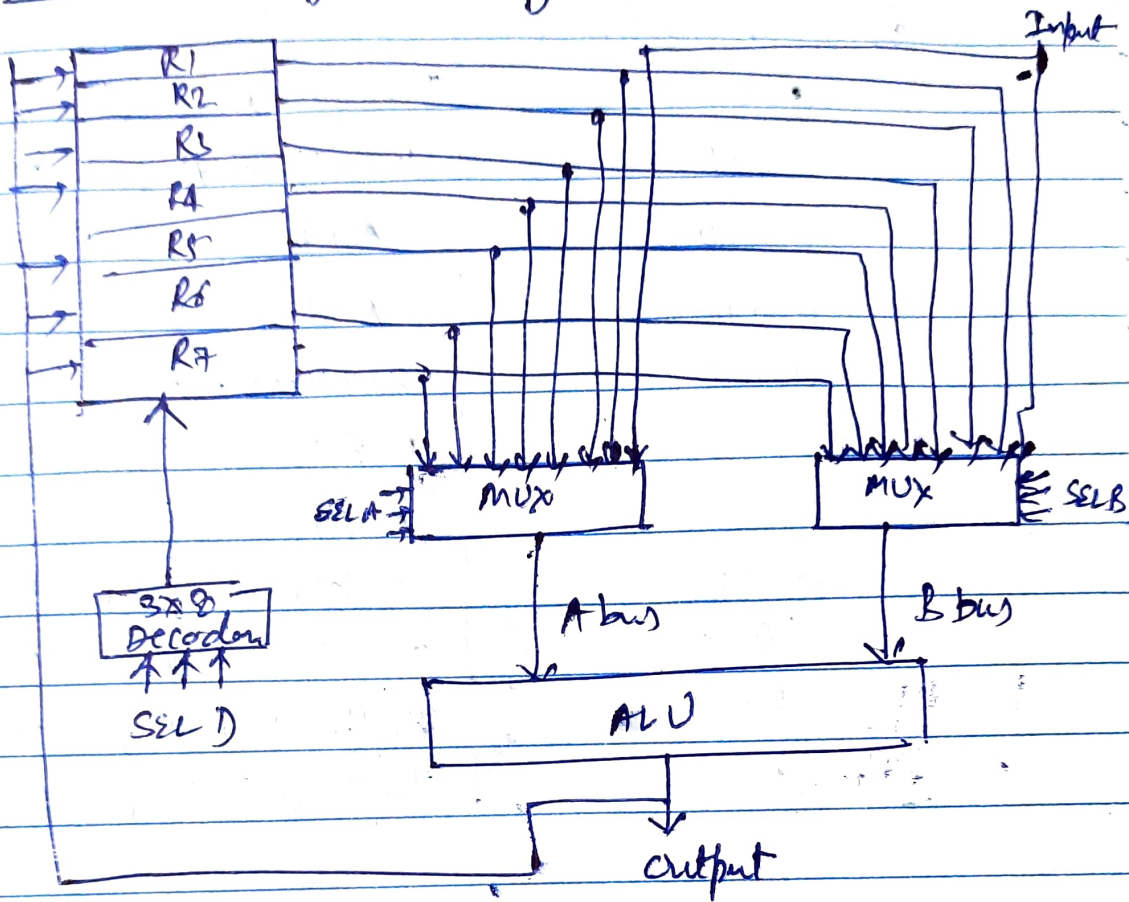 Input
R1
R2
R3
R4
R5
R6
R7
SELA
MUX
MUX
SELB
3x8
Decoder
SEL D
A bus
B bus
ALU
Output